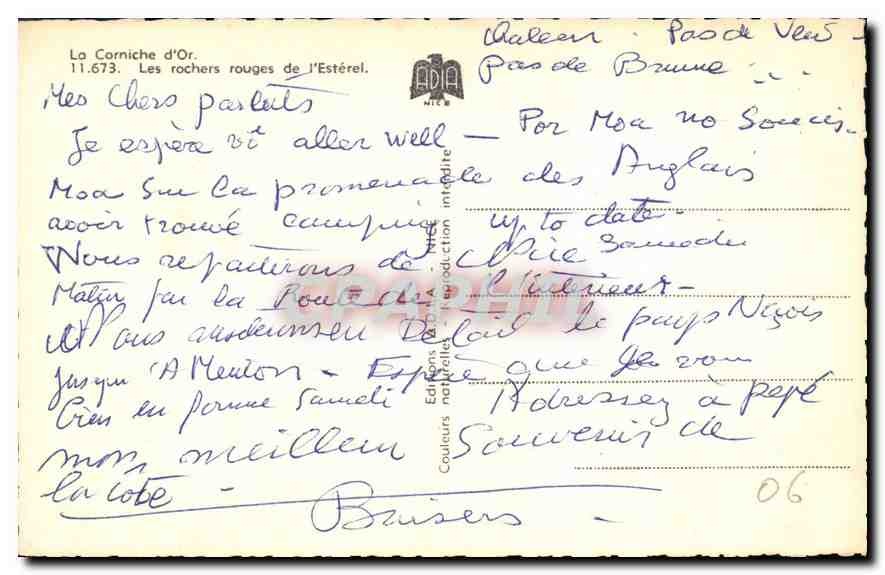 La Corniche d'Or.
11.673. Les rochers rouges de l'Estérel.
ADIA
NICE
Pas de Vent -
pas de Brume ...
Mes Chers
Je espère aller well - Por Moa no Soucis -
Moa Sur la promenade des Anglais
avoir trouvé camping up to date -
Nous repartirons de Nice Samedi
Matin par la Route de l'interieur -
Nous Détail le pays Niçois
jusqu'A Menton - Espère que Je vous
en forme Samedi Adressez à pepé
mon meilleur Souvenir de
la côte -
Baisers -
Editions ADIA - NICE
Couleurs naturelles - Reproduction interdite
CPAPHIL
06